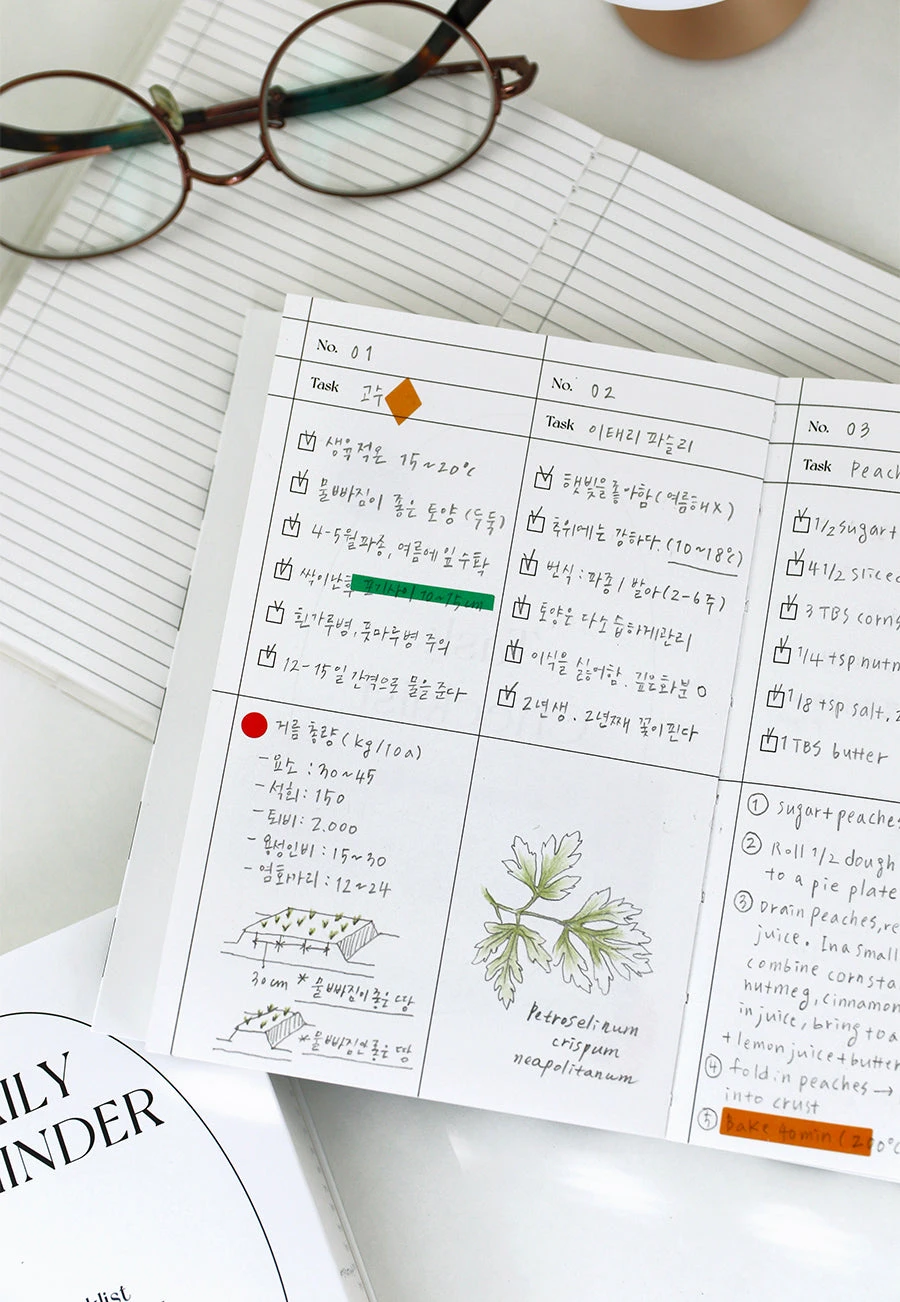 No. 01
Task 고수
생육적온 15~20℃
물빠짐이 좋은 토양 (두둑)
4-5월파종, 여름에 잎 수확
싹이난후 포기사이 10~15cm
흰가루병, 풋마루병 주의
12-15일 간격으로 물을 준다
거름 총량 (kg/10a)
-요소 : 30~45
-석회: 150
-퇴비: 2.000
-용성인비 : 15~30
-염화가리 : 12~24
30cm * 물빠짐이 좋은 땅
*물빠짐 안좋은 땅
No. 02
Task 이태리 파슬리
햇빛을좋아함 (여름해X)
추위에는 강하다. (10~18℃)
번식 : 파종 / 발아 (2-6주)
토양은 다소 습하게관리
이식을 싫어함. 깊은화분 O
2년생. 2년째 꽃이핀다
Petroselinum
crispum
neapolitanum
No. 03
Task Peach
1/2 sugar +
4 1/2 sliced
3 TBS corns
1/4 tsp nutm
1/8 tsp salt, 2
1 TBS butter
① sugar + peaches
② Roll 1/2 dough
to a pie plate
③ Drain peaches, re
juice. In a small
combine cornsta
nutmeg, cinnamon
in juice, bring to a
+ lemon juice + butter
④ fold in peaches →
into crust
⑤ Bake 40min (200℃
AILY
INDER
klist